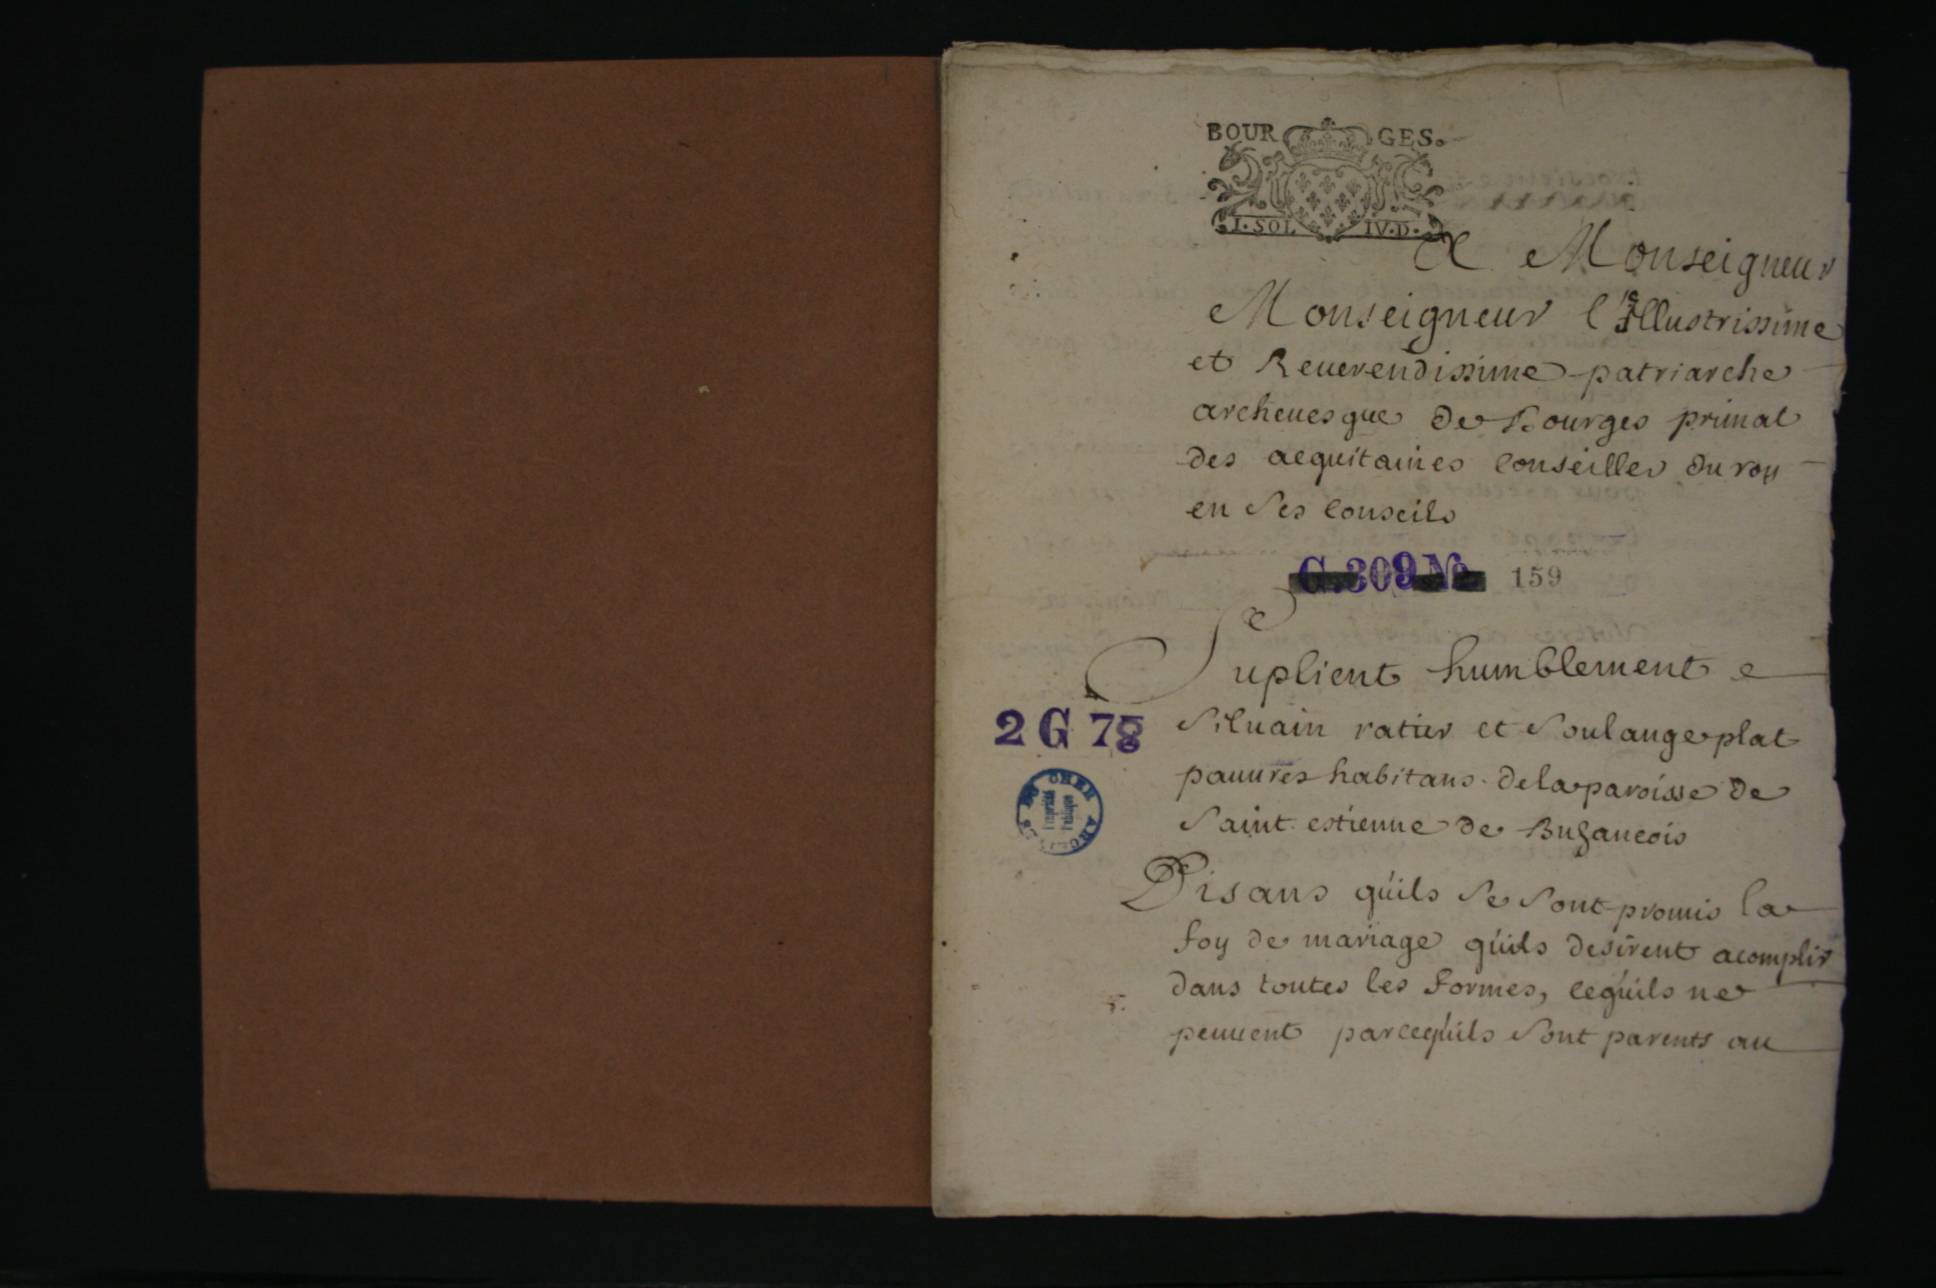 BOUR GES.
I. SOL IV. D.
A Monseigneur
Monseigneur l'Illustrissime
et Reuerendissime patriarche
archeuesque de Bourges primat
des acquitaines Conseiller du roy
en Ses Conseils
G. 309 No 159
Suplient humblement
2 G 78
Siluain ratier et Soulange plat
pauures habitans de la paroisse de
Saint estienne de Buzancois
CHER ARCHIVES DU
Disans qu'ils Se Sont promis la
foy de mariage qu'ils desirent acomplir
dans toutes les formes, ce qu'ils ne
peuuent parcequ'ils Sont parents au